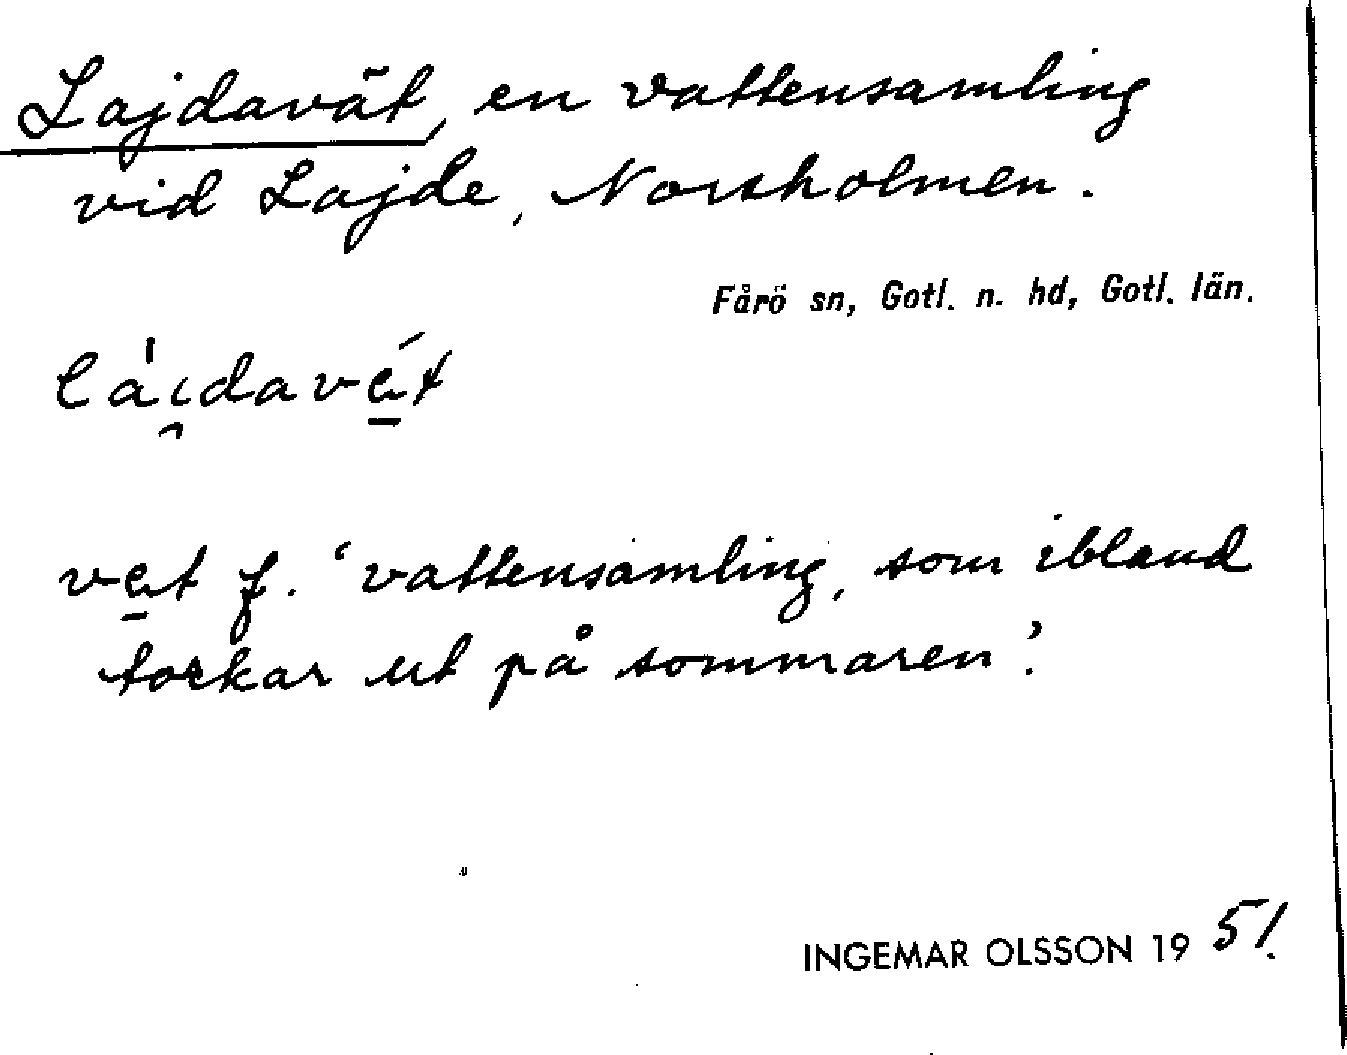 Lajdavät, en vattensamling
vid Lajde, Norsholmen.
Fårö sn, Gotl. n. hd, Gotl. län.
vat f. 'vattensamling, som ibland
torkar ut på sommaren'.
INGEMAR OLSSON 1951.